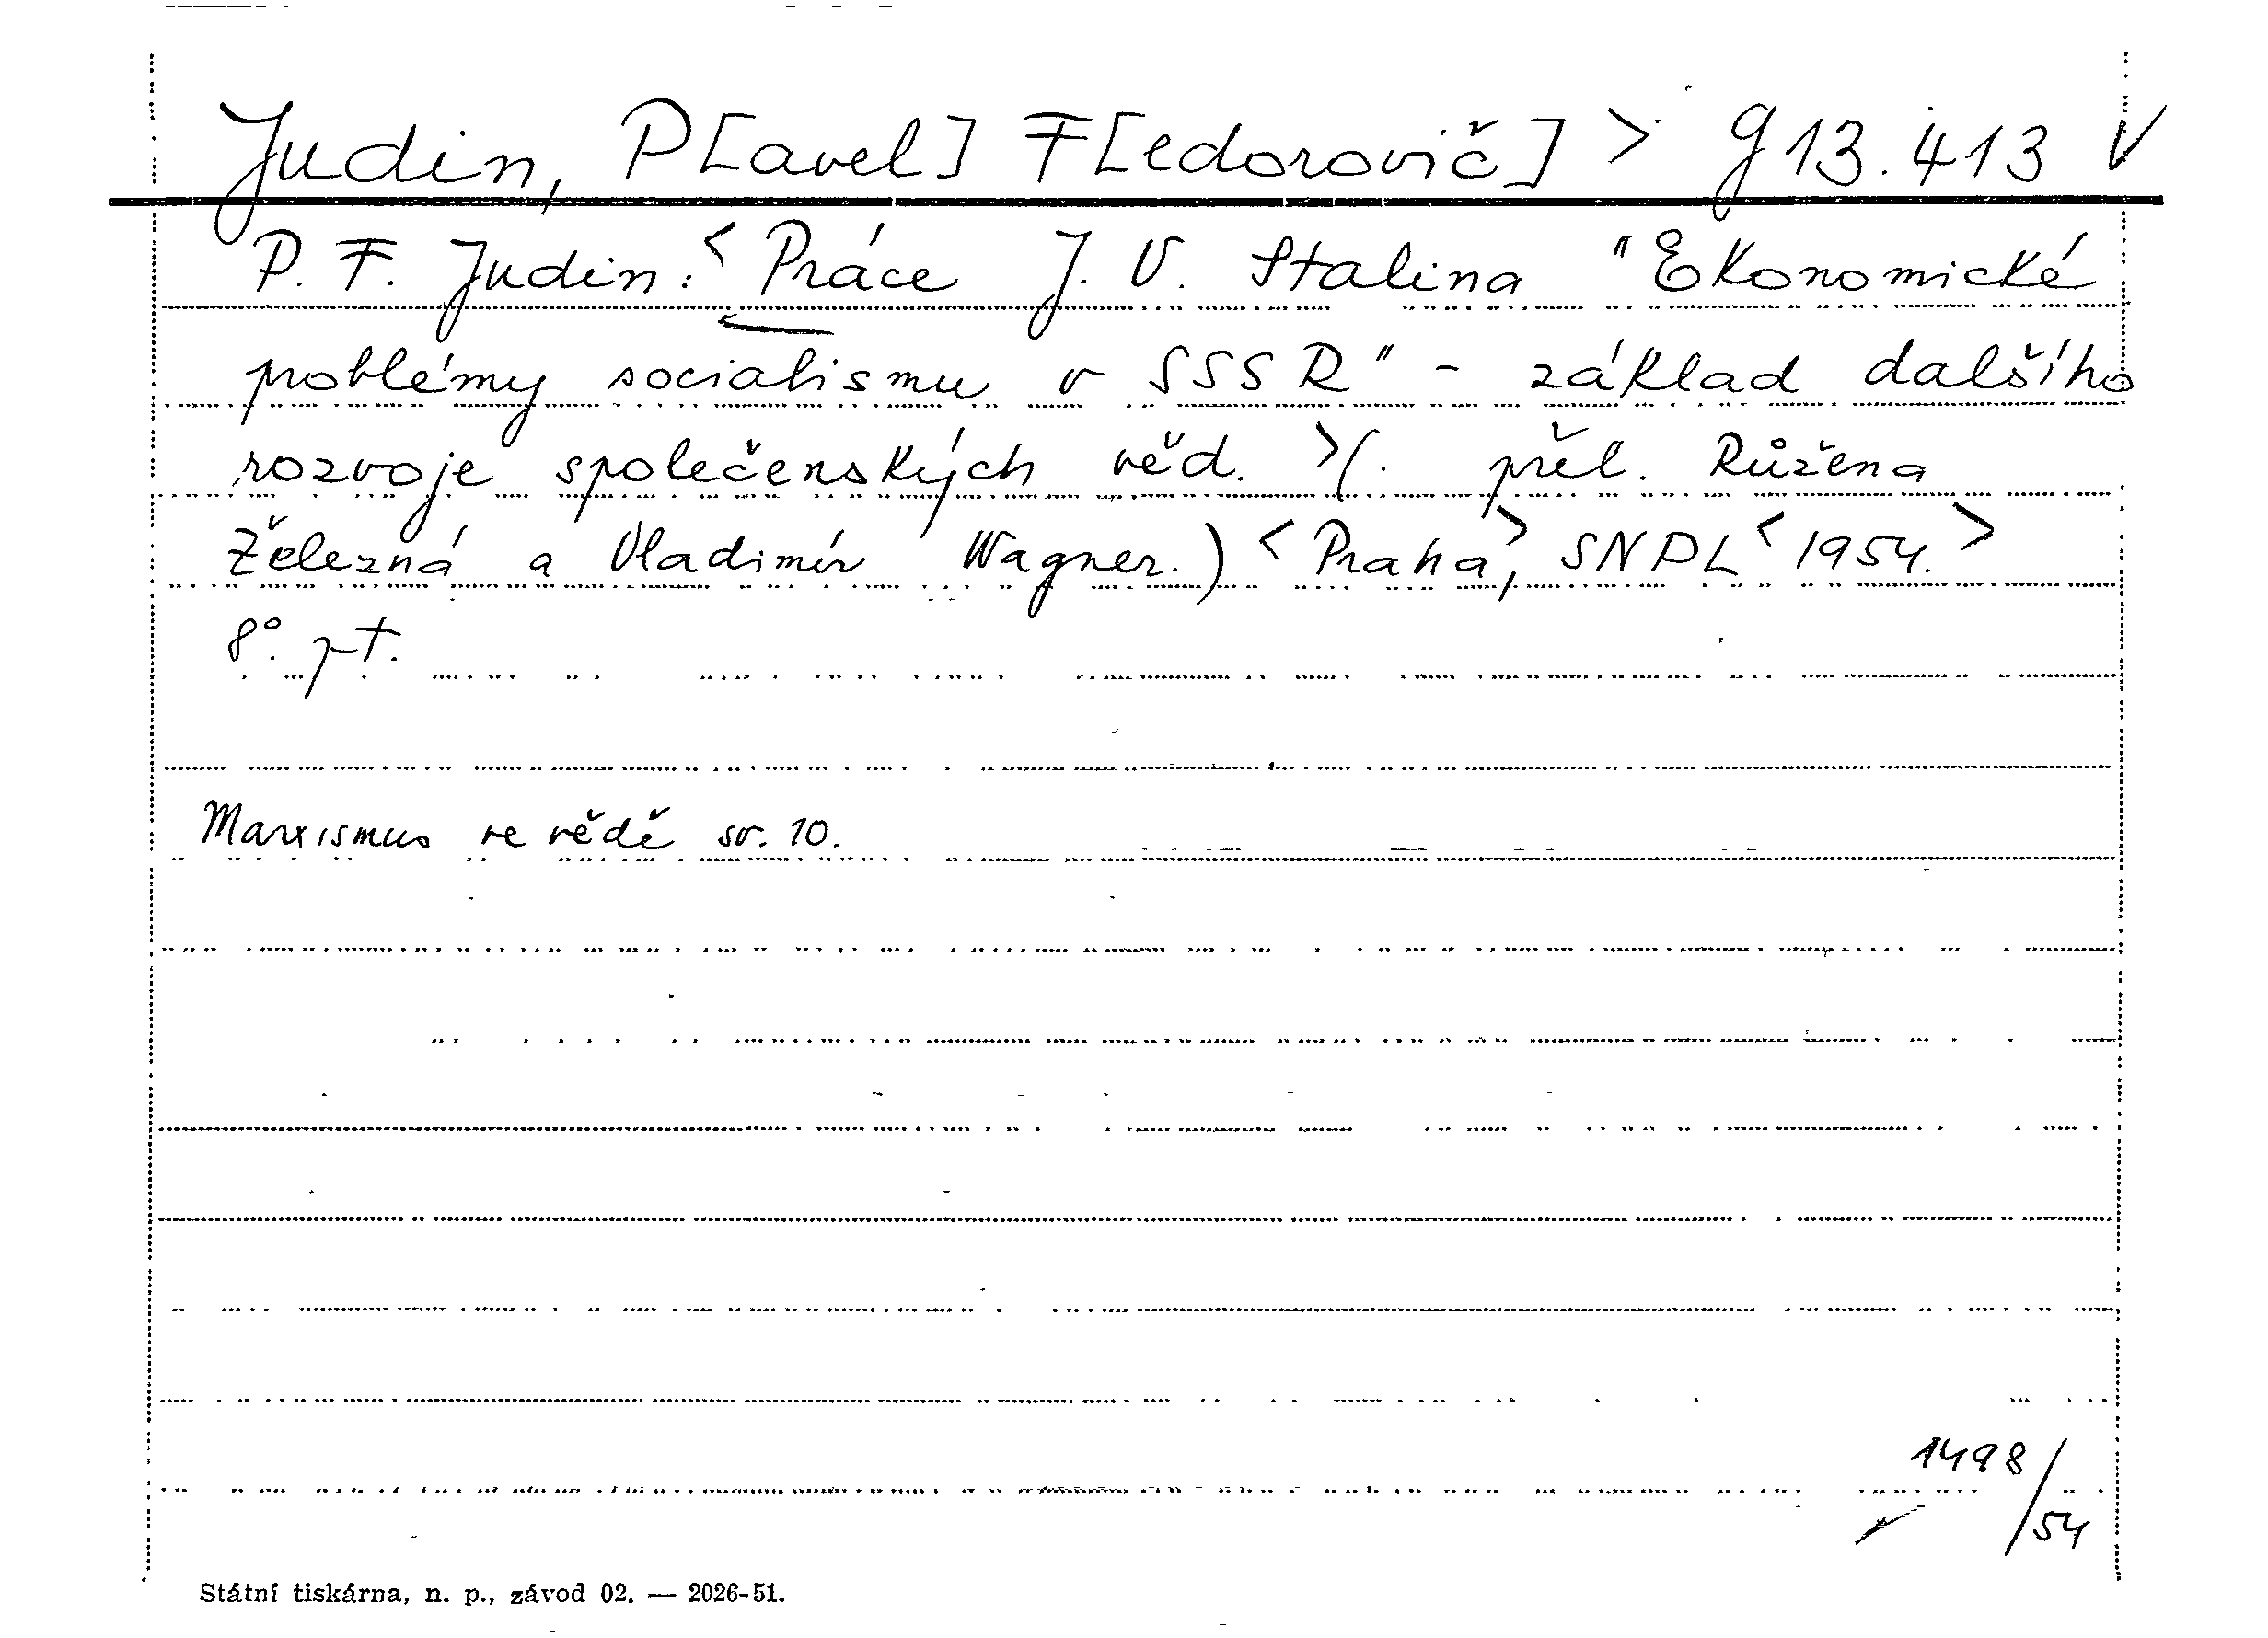 Judin, P[avel] F[edorovič] > g 13.413 V
P. F. Judin: < Práce J. V. Stalina "Ekonomické
problémy socialismu v SSSR" - základ dalšího
rozvoje společenských věd. >(. přel. Růžena
Železná a Vladimír Wagner.) < Praha >, SNPL < 1954. >
8°. pt.
Marxismus ve vědě sv. 10.
1498/54
Státní tiskárna, n. p., závod 02. — 2026-51.